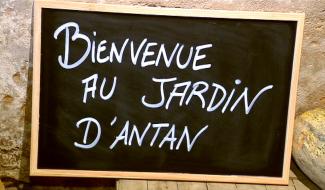 BIENVENUE
AU JARDIN
D'ANTAN